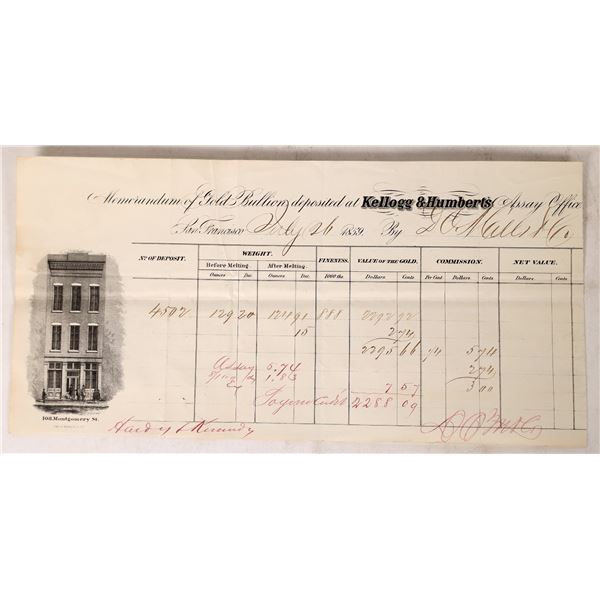 Memorandum of Gold Bullion deposited at Kellogg & Humberts Assay Office
San Francisco July 26 1859 By D.O. Mills & Co
No. OF DEPOSIT. WEIGHT. FINENESS. VALUE OF THE GOLD. COMMISSION. NET VALUE.
Before Melting. After Melting.
Ounces Dec. Ounces Dec. 1000 ths. Dollars Cents Per Cent Dollars Cents Dollars Cents
4502 129 20 124 91 888 2292 92
15 2 74
2295 66 1/4 5 74
Assay 5.74 2 74
1.83 7 57 3 00
2288 09
108 Montgomery St.
Hardy & Kennedy